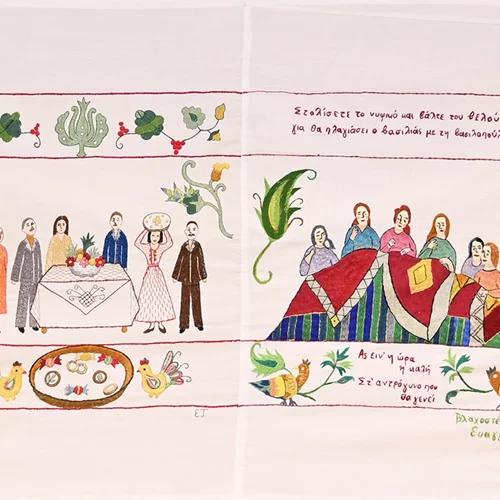 Στολίσετε το νυφικό και βάλτε του βελού
για θα πλαγιάσει ο βασιλιάς με τη βασιλοπούλ
Ας ειν' η ώρα
η καλή
Στ' αντρόγυνο που
θα γενεί
ΕΤ
Βλαχοστέ
Ευαγγ